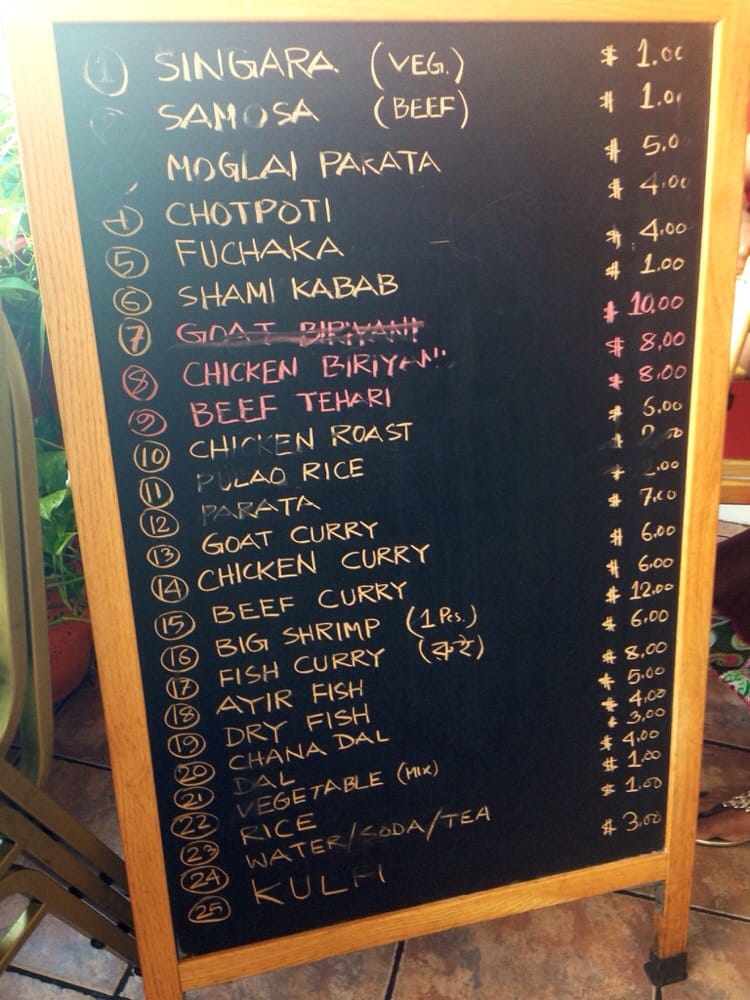 1 SINGARA (VEG.) $ 1.00
SAMOSA (BEEF) $ 1.0
MOGLAI PARATA $ 5.0
4 CHOTPOTI $ 4.00
5 FUCHAKA $ 4.00
6 SHAMI KABAB $ 1.00
7 GOAT BIRIYANI $ 10.00
8 CHICKEN BIRIYANI $ 8.00
9 BEEF TEHARI $ 8.00
10 CHICKEN ROAST $ 5.00
11 PULAO RICE $ 2.00
12 PARATA $ 2.00
13 GOAT CURRY $ 7.00
14 CHICKEN CURRY $ 6.00
15 BEEF CURRY $ 6.00
16 BIG SHRIMP (1 Pcs.) $ 12.00
17 FISH CURRY (রুই) $ 6.00
18 AYIR FISH $ 8.00
19 DRY FISH $ 5.00
20 CHANA DAL $ 4.00
21 DAL $ 3.00
22 VEGETABLE (MIX) $ 4.00
23 RICE $ 1.00
24 WATER/SODA/TEA $ 1.00
25 KULFI $ 3.00